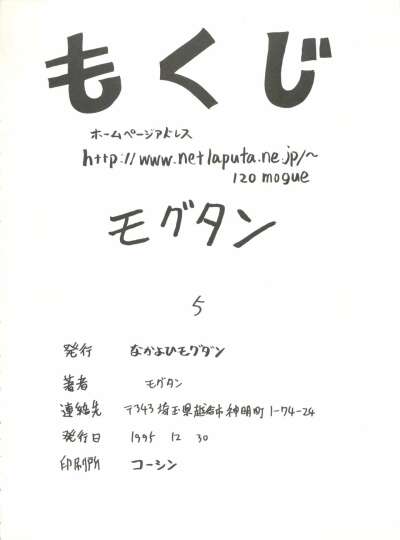 もくじ
ホームページアドレス
http://www.netlaputa.ne.jp/~
120 mogue
モグタン
5
発行 なかよひモグダン
著者 モグタン
連絡先 〒343 埼玉県越谷市神明町1-74-24
発行日 1995 12 30
印刷所 コーシン